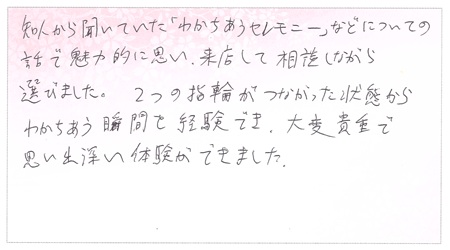 知人から聞いていた「わかちあうセレモニー」などについての
話で魅力的に思い、来店して相談しながら
選びました。 2つの指輪がつながった状態から
わかちあう瞬間を経験でき、大変貴重で
思い出深い体験ができました。